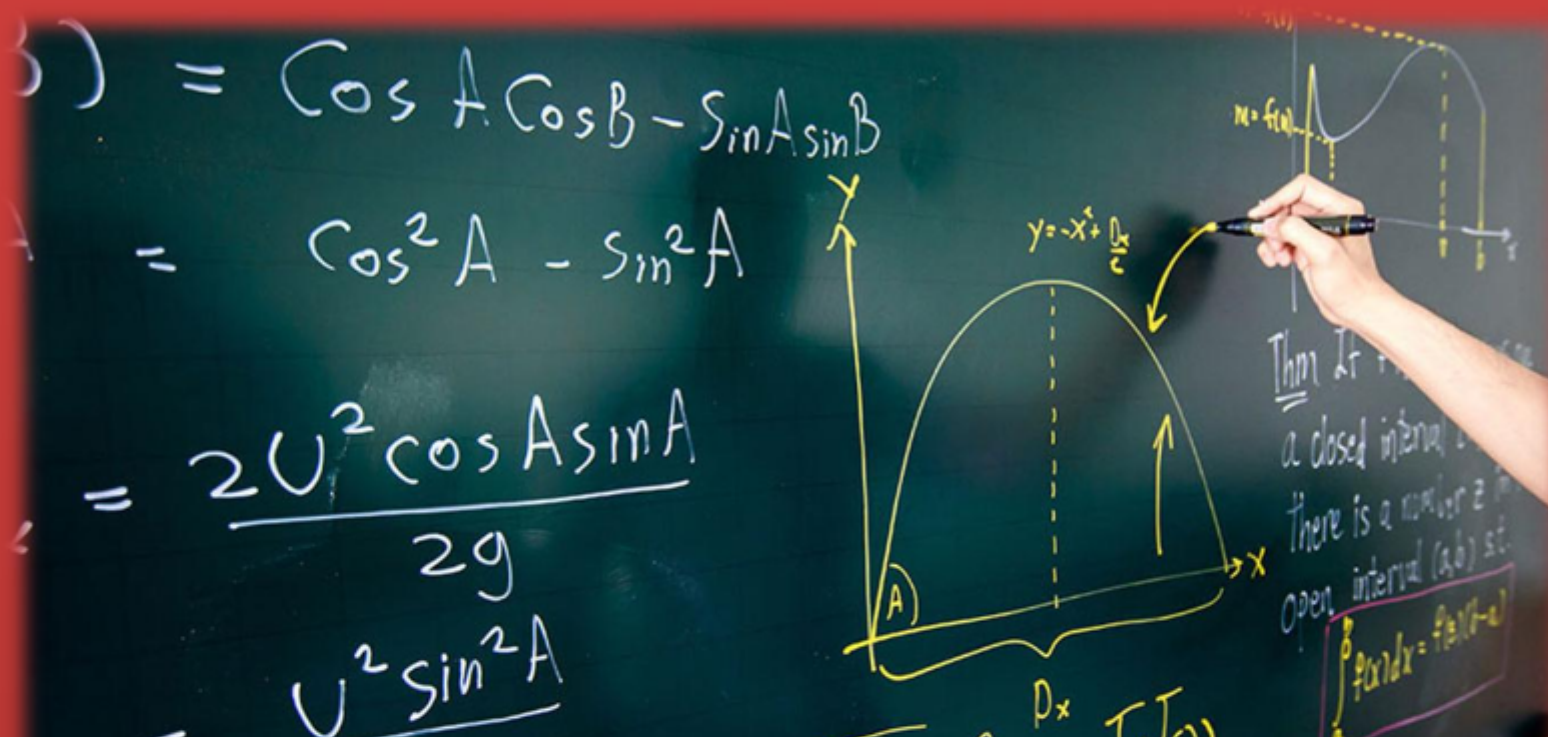 ) = Cos A CosB - SinAsinB
= Cos² A - Sin² A
= 2U² cos AsinA
2g
U² sin² A
Y
y = -x² + Dx
A)
X
Dx
m = f(n)
b
x
Thm If
a closed interval
there is a number z
open interval (a,b) s.t.
∫ f(x)dx = f(z)(b-a)